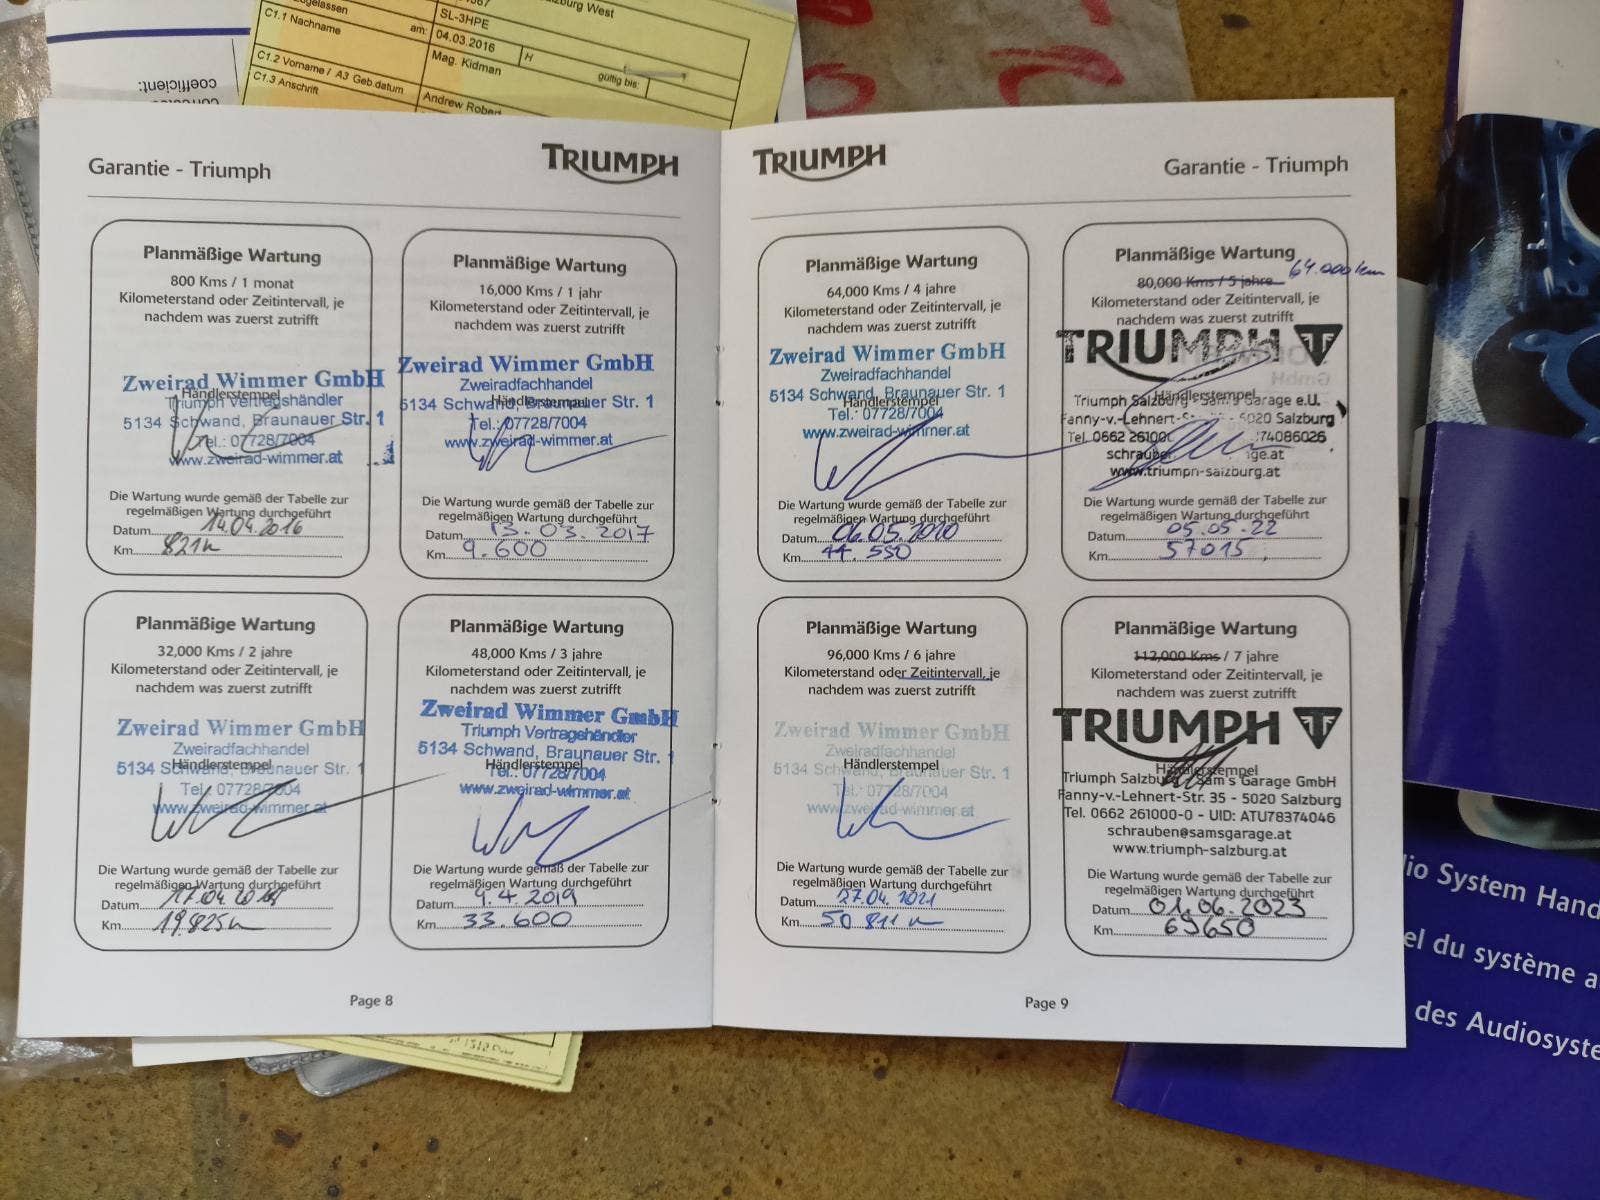 zburg West
SL-3HPE
C1.1 Nachname
am: 04.03.2016
H
gültig bis:
Mag. Kidman
C1.2 Vorname / A3 Geb.datum
C1.3 Anschrift
Andrew Robert
coefficient:
Garantie - Triumph
TRIUMPH
Planmäßige Wartung
800 Kms / 1 monat
Kilometerstand oder Zeitintervall, je
nachdem was zuerst zutrifft
Zweirad Wimmer GmbH
Händlerstempel
Triumph Vertragshändler
5134 Schwand, Braunauer Str. 1
Tel.: 07728/7004
www.zweirad-wimmer.at
Die Wartung wurde gemäß der Tabelle zur
regelmäßigen Wartung durchgeführt
Datum 14.04.2016
Km 821
Planmäßige Wartung
16,000 Kms / 1 jahr
Kilometerstand oder Zeitintervall, je
nachdem was zuerst zutrifft
Zweirad Wimmer GmbH
Zweiradfachhandel
Händlerstempel
5134 Schwand, Braunauer Str. 1
Tel.: 07728/7004
www.zweirad-wimmer.at
Die Wartung wurde gemäß der Tabelle zur
regelmäßigen Wartung durchgeführt
Datum 13.03.2017
Km 9.600
Planmäßige Wartung
32,000 Kms / 2 jahre
Kilometerstand oder Zeitintervall, je
nachdem was zuerst zutrifft
Zweirad Wimmer GmbH
Zweiradfachhandel
Händlerstempel
5134 Schwand, Braunauer Str. 1
Tel.: 07728/7004
www.zweirad-wimmer.at
Die Wartung wurde gemäß der Tabelle zur
regelmäßigen Wartung durchgeführt
Datum 17.04
Km 19.825
Planmäßige Wartung
48,000 Kms / 3 jahre
Kilometerstand oder Zeitintervall, je
nachdem was zuerst zutrifft
Zweirad Wimmer GmbH
Triumph Vertragshändler
5134 Schwand, Braunauer Str. 1
Händlerstempel
Tel.: 07728/7004
www.zweirad-wimmer.at
Die Wartung wurde gemäß der Tabelle zur
regelmäßigen Wartung durchgeführt
Datum 9.4.2019
Km 33.600
Page 8
TRIUMPH
Garantie - Triumph
Planmäßige Wartung
64,000 Kms / 4 jahre
Kilometerstand oder Zeitintervall, je
nachdem was zuerst zutrifft
Zweirad Wimmer GmbH
Zweiradfachhandel
5134 Schwand, Braunauer Str. 1
Händlerstempel
Tel.: 07728/7004
www.zweirad-wimmer.at
Die Wartung wurde gemäß der Tabelle zur
regelmäßigen Wartung durchgeführt
Datum 06.05.2020
Km 44.550
Planmäßige Wartung
80,000 Kms / 5 jahre 64.000 km
Kilometerstand oder Zeitintervall, je
nachdem was zuerst zutrifft
TRIUMPH
Händlerstempel
Triumph Salzburg - Sam's Garage e.U.
Fanny-v.-Lehnert- 5020 Salzburg
Tel. 0662 26100 74086026
schrauben ge.at
www.triumph-salzburg.at
Die Wartung wurde gemäß der Tabelle zur
regelmäßigen Wartung durchgeführt
Datum 05.05.22
Km 57015
Planmäßige Wartung
96,000 Kms / 6 jahre
Kilometerstand oder Zeitintervall, je
nachdem was zuerst zutrifft
Zweirad Wimmer GmbH
Zweiradfachhandel
Händlerstempel
5134 Schwand, Braunauer Str. 1
Tel.: 07728/7004
www.zweirad-wimmer.at
Die Wartung wurde gemäß der Tabelle zur
regelmäßigen Wartung durchgeführt
Datum 27.04.2021
Km 50 811
Planmäßige Wartung
112,000 Kms / 7 jahre
Kilometerstand oder Zeitintervall, je
nachdem was zuerst zutrifft
TRIUMPH
Händlerstempel
Triumph Salzburg Sam's Garage GmbH
Fanny-v.-Lehnert-Str. 35 - 5020 Salzburg
Tel. 0662 261000-0 - UID: ATU78374046
schrauben@samsgarage.at
www.triumph-salzburg.at
Die Wartung wurde gemäß der Tabelle zur
regelmäßigen Wartung durchgeführt
Datum 01.06.2023
Km 69650
Page 9
dio System Hand
el du système a
des Audiosyste